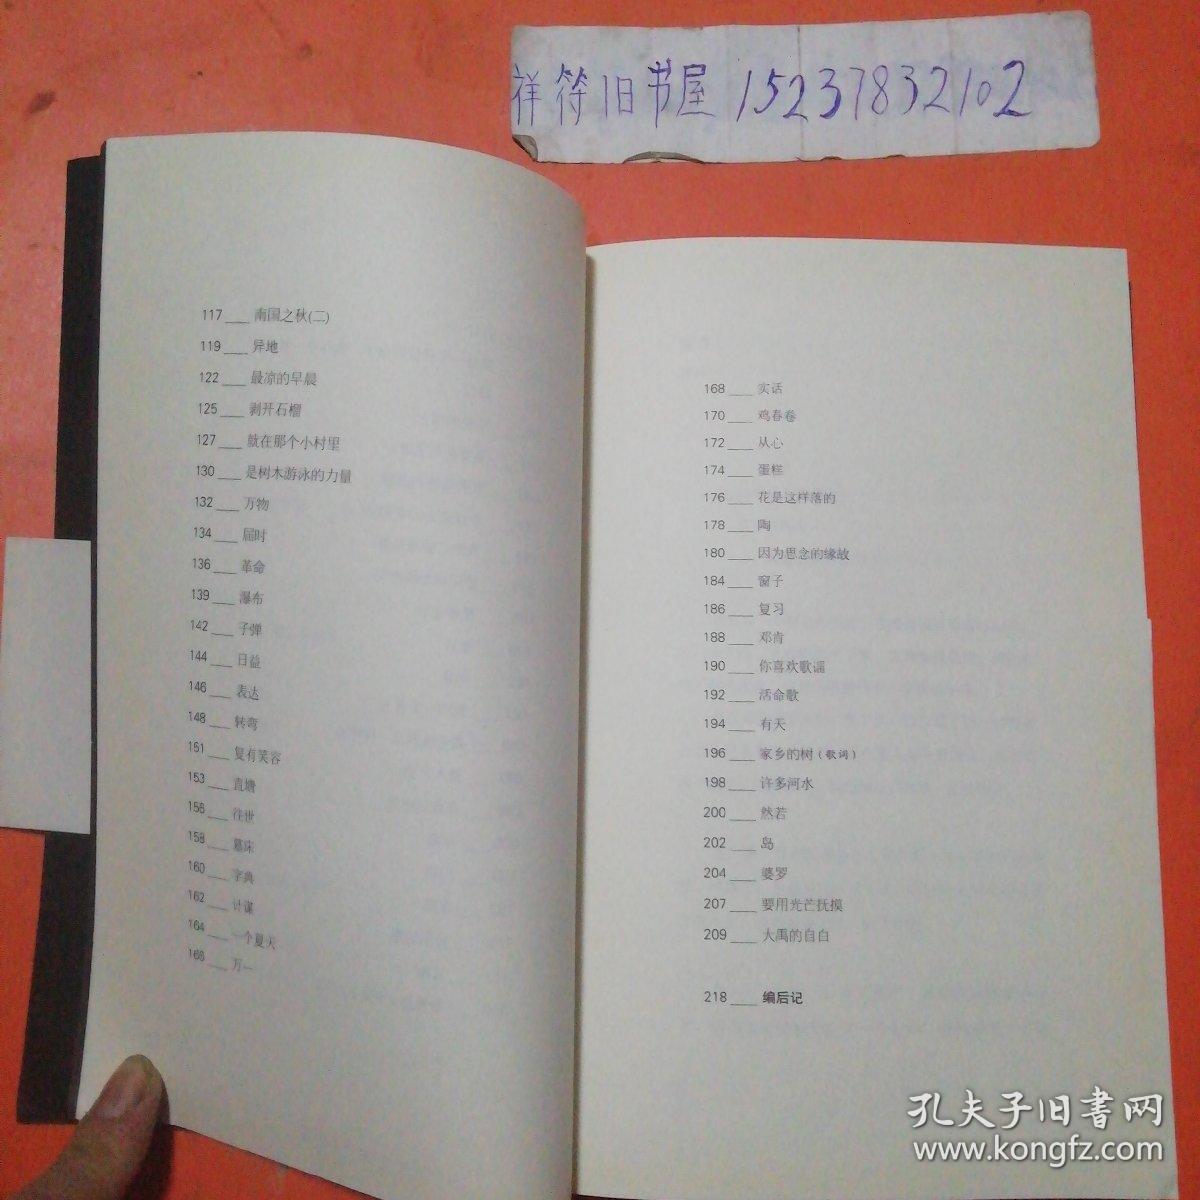 祥符旧书屋 15237832102
117 ___ 南国之秋(二)
119 ___ 异地
122 ___ 最凉的早晨
125 ___ 剥开石榴
127 ___ 就在那个小村里
130 ___ 是树木游泳的力量
132 ___ 万物
134 ___ 届时
136 ___ 革命
139 ___ 瀑布
142 ___ 子弹
144 ___ 日益
146 ___ 表达
148 ___ 转弯
151 ___ 复有笑容
153 ___ 直塘
156 ___ 往世
158 ___ 墓床
160 ___ 字典
162 ___ 计谋
164 ___ 一个夏天
166 ___ 万一
168 ___ 实话
170 ___ 鸡春卷
172 ___ 从心
174 ___ 蛋糕
176 ___ 花是这样落的
178 ___ 陶
180 ___ 因为思念的缘故
184 ___ 窗子
186 ___ 复习
188 ___ 邓肯
190 ___ 你喜欢歌谣
192 ___ 活命歌
194 ___ 有天
196 ___ 家乡的树(歌词)
198 ___ 许多河水
200 ___ 然若
202 ___ 岛
204 ___ 婆罗
207 ___ 要用光芒抚摸
209 ___ 大禹的自白
218 ___ 编后记
孔夫子旧書网
www.kongfz.com